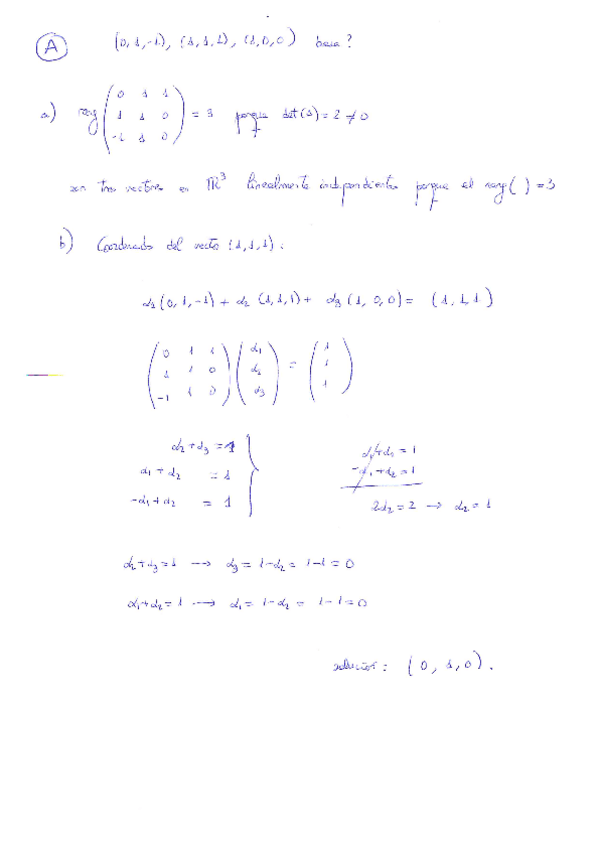 A (0,1,-1), (1,1,1), (1,0,0) base?
a) rang ( 0 1 1
1 1 0
-1 1 0 ) = 3 porque det(A) = 2 ≠ 0
son tres vectores en ℝ³ linealmente independientes porque el rang( ) = 3
b) Coordenadas del vector (1,1,1):
α₁(0,1,-1) + α₂(1,1,1) + α₃(1,0,0) = (1,1,1)
( 0 1 1 ) ( α₁ ) ( 1 )
( 1 1 0 ) ( α₂ ) = ( 1 )
( -1 1 0 ) ( α₃ ) ( 1 )
α₂+α₃ = 1
α₁+α₂ = 1
-α₁+α₂ = 1
α₁+α₂ = 1
-α₁+α₂ = 1
2α₂ = 2 → α₂ = 1
α₂+α₃ = 1 → α₃ = 1-α₂ = 1-1 = 0
α₁+α₂ = 1 → α₁ = 1-α₂ = 1-1 = 0
solución: (0,1,0).